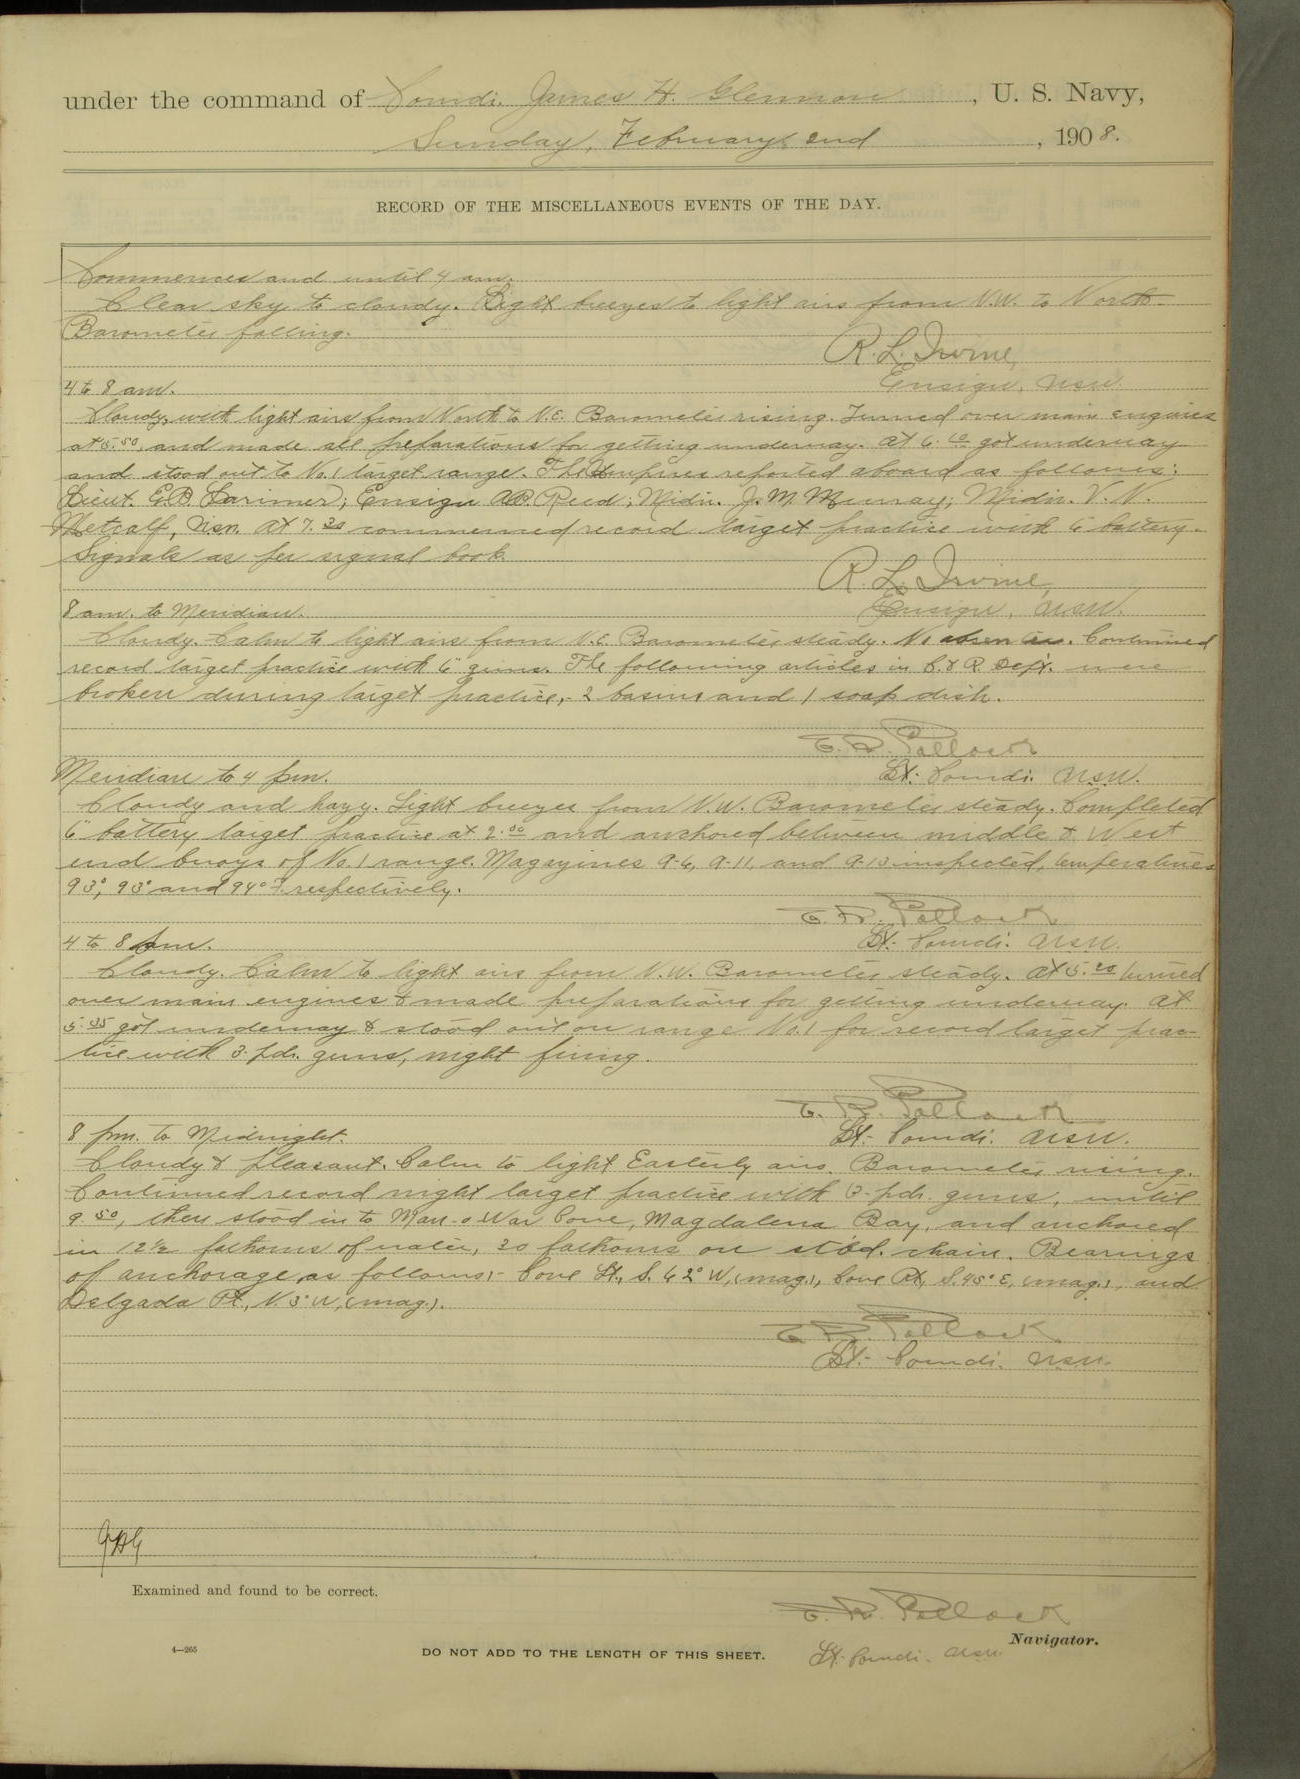 under the command of Comdr. James H. Glennon, U. S. Navy,
Sunday, February 2nd, 1908.
RECORD OF THE MISCELLANEOUS EVENTS OF THE DAY.
Commences and until 4 am.
Clear sky to cloudy. Light breezes to light airs from N.W. to North.
Barometer falling.
R. L. Irvine,
Ensign, USN.
4 to 8 am.
Cloudy, with light airs from North to N.E. Barometer rising. Turned over main engines
at 5.50, and made all preparations for getting underway. At 6.10 got underway
and stood out to No. 1 target range. The Umpires reported aboard as follows:
Lieut. E.B. Larimer; Ensign A.B. Reed; Midn. J. M. Murray; Midn. V. N.
Metcalf, USN. At 7.30 commenced record target practice with 6" battery.
Signals as per signal book.
R. L. Irvine,
Ensign, USN.
8 am. to Meridian.
Cloudy. Calm to light airs from N.E. Barometer steady. No absentees. Continued
record target practice with 6" guns. The following articles in C. & R. Dep't. were
broken during target practice, - 2 basins and 1 soap dish.
E. R. Pollock
Lt. Comdr. USN.
Meridian to 4 pm.
Cloudy and hazy. Light breezes from N.W. Barometer steady. Completed
6" battery target practice at 2.00 and anchored between middle & West
end buoys of No. 1 range. Magazines A-6, A-11, and A-13 inspected, temperatures
93°, 93° and 94° F. respectively.
E. R. Pollock
Lt. Comdr. USN.
4 to 8 pm.
Cloudy. Calm to light airs from N.W. Barometer steady. At 5.20 turned
over main engines & made preparations for getting underway. At
5.35 got underway & stood out on range No. 1 for record target prac-
tice with 3-pdr. guns, night firing.
E. R. Pollock
Lt. Comdr. USN.
8 pm. to Midnight.
Cloudy & pleasant. Calm to light Easterly airs. Barometer rising.
Continued record night target practice with 3-pdr. guns, until
9.50, then stood in to Man-o-War Cove, Magdalena Bay, and anchored
in 12½ fathoms of water, 30 fathoms on st'b'd. chain. Bearings
of anchorage, as follows:- Cove Lt., S. 62° W, (mag.), Cove Pt, S. 45° E, (mag.), and
Delgada Pt., N. 3° W, (mag.).
E. R. Pollock
Lt. Comdr. USN.
JHG
Examined and found to be correct.
E. R. Pollock
Lt. Comdr. USN.
Navigator.
4—265
DO NOT ADD TO THE LENGTH OF THIS SHEET.